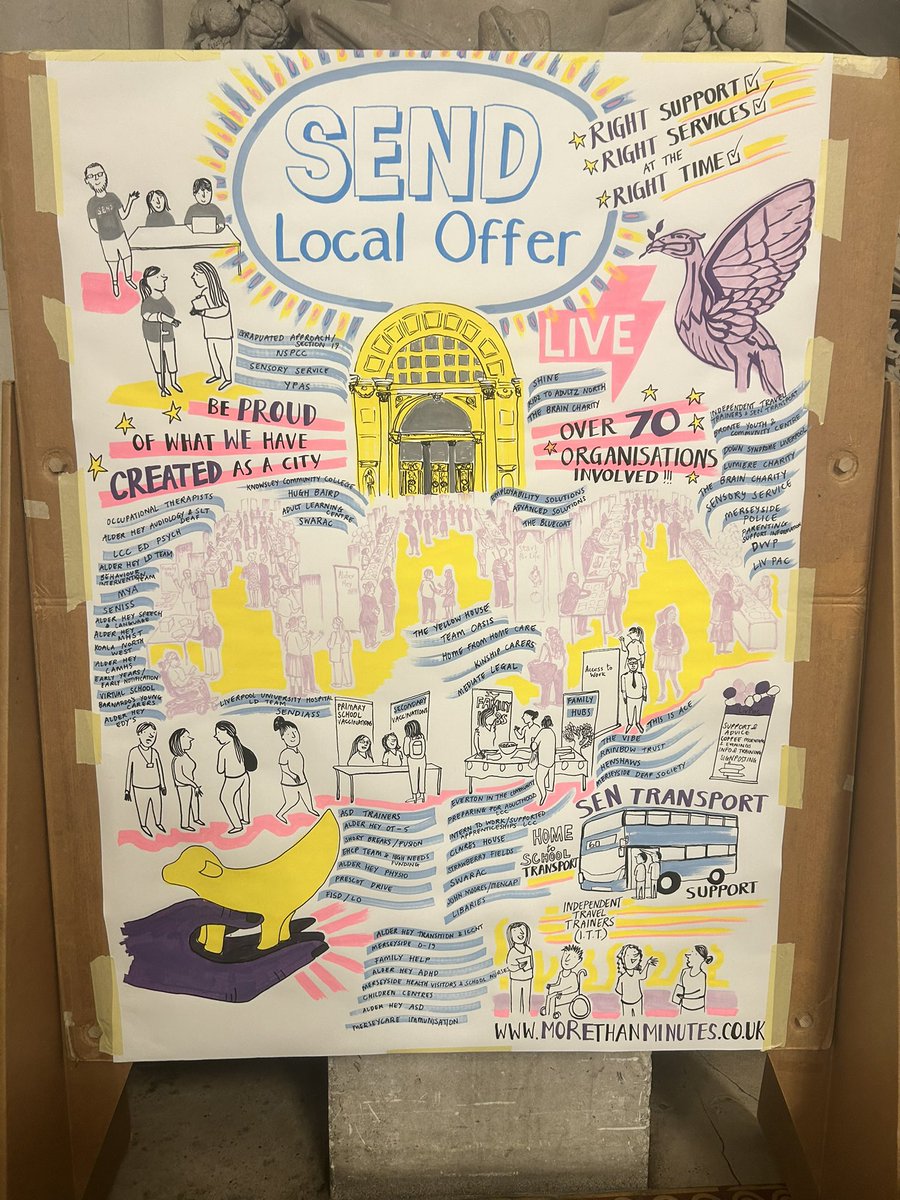 SEND
Local Offer
RIGHT SUPPORT
RIGHT SERVICES
AT THE
RIGHT TIME
SEND
LIVE
GRADUATED APPROACH/
SECTION 19
NSPCC
SENSORY SERVICE
YPAS
BE PROUD
OF WHAT WE HAVE
CREATED AS A CITY
SHINE
KIDZ TO ADULTZ NORTH
THE BRAIN CHARITY
OVER 70
ORGANISATIONS
INVOLVED!!!
INDEPENDENT TRAVEL
TRAINERS & SEN TRANSPORT
BRONTE YOUTH &
COMMUNITY CENTRE
DOWN SYNDROME LIVERPOOL
LUMIERE CHARITY
THE BRAIN CHARITY
SENSORY SERVICE
MERSEYSIDE
POLICE
PARENTING
SUPPORT INFORMATION
DWP
LIV PAC
KNOWSLEY COMMUNITY COLLEGE
HUGH BAIRD
ADULT LEARNING
CENTRE
SWARAC
EMPLOYABILITY SOLUTIONS
ADVANCED SOLUTIONS
THE BLUECOAT
OCCUPATIONAL THERAPISTS
ALDER HEY AUDIOLOGY & SLT
DEAF
LCC ED PSYCH
ALDER HEY LD TEAM
BEHAVIOUR
INTERVENTION TEAM
MYA
SENISS
ALDER HEY SPEECH
& LANGUAGE
ALDER HEY
MHST
KOALA NORTH
WEST
ALDER HEY
CAMHS
EARLY YEARS/
EARLY NOTIFICATION
VIRTUAL SCHOOL
BARNARDO'S YOUNG
CARERS
ALDER HEY
EDY'S
LIVERPOOL UNIVERSITY HOSPITAL
LD TEAM
SENDIASS
THE YELLOW HOUSE
TEAM OASIS
HOME FROM HOME CARE
KINSHIP CARERS
MEDIATE LEGAL
Access to
Work
PRIMARY
SCHOOL
VACCINATIONS
SECONDARY
VACCINATIONS
FAMILY
HUBS
FAMILY
HUBS
THIS IS ACE
THE VIBE
RAINBOW TRUST
HENSHAWS
MERSEYSIDE DEAF SOCIETY
SUPPORT &
ADVICE
COFFEE MORNINGS
& EVENINGS
INFO & TRAINING
SIGNPOSTING
ASD TRAINERS
ALDER HEY 0T-5
SHORT BREAKS/FUSION
EHCP TEAM & HIGH NEEDS
FUNDING
ALDER HEY PHYSIO
PRESCOT DRIVE
FISD/LO
EVERTON IN THE COMMUNITY
PREPARING FOR ADULTHOOD
LCC
INTERN TO WORK/SUPPORTED
APPRENTICESHIPS LCC
CLARES HOUSE
STRAWBERRY FIELDS
SWARAC
JOHN MOORES/MENCAP
LIBARIES
SEN TRANSPORT
HOME
to
SCHOOL
TRANSPORT
60
SUPPORT
INDEPENDENT
TRAVEL
TRAINERS
(I.T.T)
ALDER HEY TRANSITION & ICCNT
MERSEYSIDE 0-19
FAMILY HELP
ALDER HEY ADHD
MERSEYSIDE HEALTH VISITORS & SCHOOL NURSES
CHILDREN CENTRES
ALDER HEY ASD
MERSEYCARE IMMUNISATION
WWW.MORETHANMINUTES.CO.UK